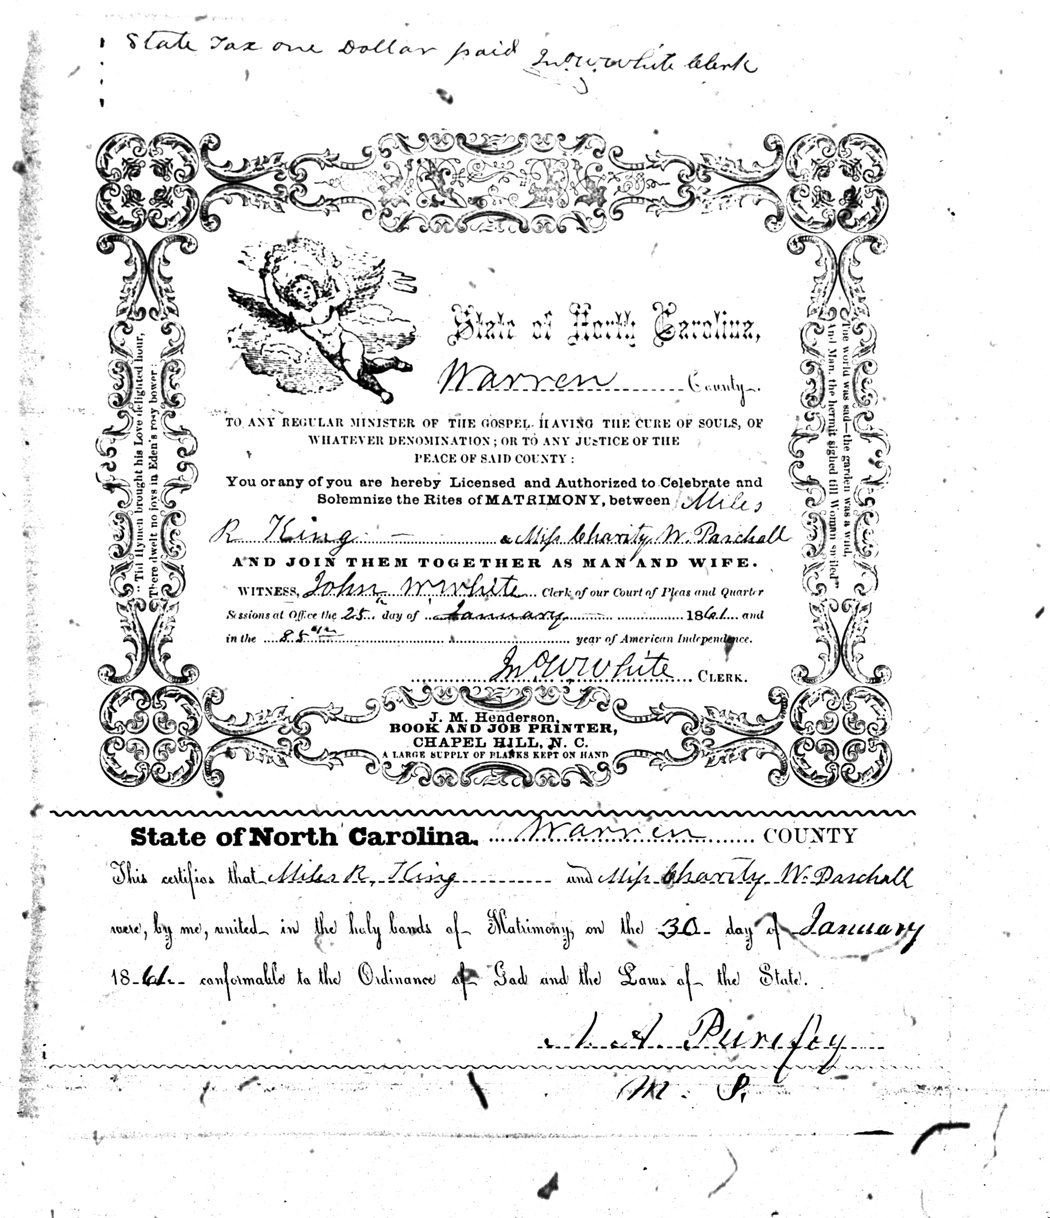 State Tax one Dollar paid Jno. W. White Clerk
State of North Carolina,
Warren County.
TO ANY REGULAR MINISTER OF THE GOSPEL HAVING THE CURE OF SOULS, OF
WHATEVER DENOMINATION; OR TO ANY JUSTICE OF THE
PEACE OF SAID COUNTY:
You or any of you are hereby Licensed and Authorized to Celebrate and
Solemnize the Rites of MATRIMONY, between Miles
R King & Miss Charity W. Paschall
AND JOIN THEM TOGETHER AS MAN AND WIFE.
WITNESS, John W. White Clerk of our Court of Pleas and Quarter
Sessions at Office the 25th day of January 1861 and
in the 85th year of American Independence.
Jno W White CLERK.
'Till Hymen brought his Love delighted hour,
There dwelt no joys in Eden's rosy bower:
The world was sad—the garden was a wild,
And Man, the hermit sighed till Woman smiled"
J. M. Henderson,
BOOK AND JOB PRINTER,
CHAPEL HILL, N. C.
A LARGE SUPPLY OF BLANKS KEPT ON HAND
State of North Carolina. Warren COUNTY
This certifies that Miles R. King and Miss Charity W. Paschall
were, by me, united in the holy bands of Matrimony, on the 30 day of January
1861 conformable to the Ordinance of God and the Laws of the State.
Purefoy
M.